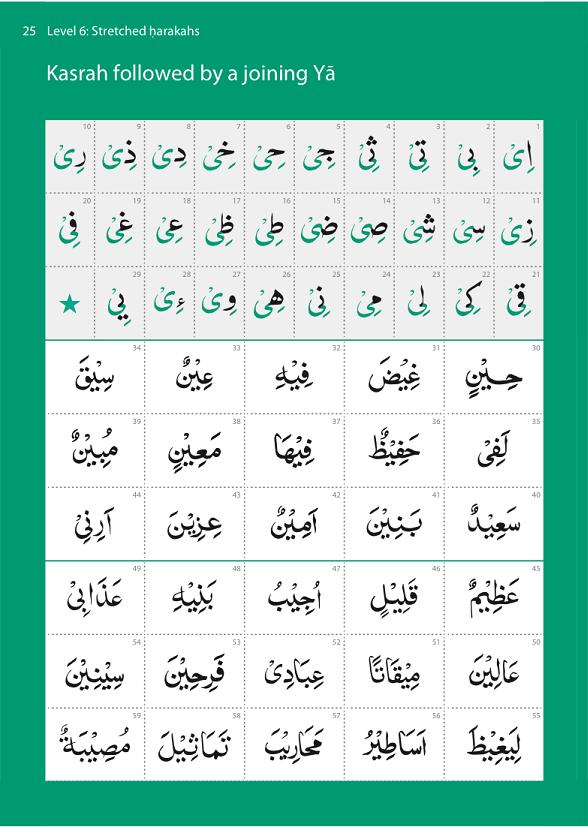 25 Level 6: Stretched ḥarakahs
Kasrah followed by a joining Yā
1 اِىْ 2 بِىْ 3 تِىْ 4 ثِىْ 5 جِىْ 6 حِىْ 7 خِىْ 8 دِىْ 9 ذِىْ 10 رِىْ
11 زِىْ 12 سِىْ 13 شِىْ 14 صِىْ 15 ضِىْ 16 طِىْ 17 ظِىْ 18 عِىْ 19 غِىْ 20 فِىْ
21 قِىْ 22 كِىْ 23 لِىْ 24 مِىْ 25 نِىْ 26 هِىْ 27 وِىْ 28 ءِىْ 29 يِىْ ★
30 حِيْنٍ 31 غِيْضَ 32 فِيْهِ 33 عِيْنٌ 34 سِيْقَ
35 لَفِىْ 36 حَفِيْظٌ 37 فِيْهَا 38 مَعِيْنٍ 39 مُبِيْنٌ
40 سَعِيْدٌ 41 بَنِيْنَ 42 اَمِيْنٌ 43 عِزِيْنَ 44 اَرِنِىْ
45 عَظِيْمٌ 46 قَلِيْلٍ 47 اُجِيْبُ 48 بَنِيْهِ 49 عَذَابِىْ
50 عَالِيْنَ 51 مِيْقَاتًا 52 عِبَادِىْ 53 فَرِحِيْنَ 54 سِيْنِيْنَ
55 لِيَغِيْظَ 56 اَسَاطِيْرُ 57 مَحَارِيْبَ 58 تَمَاثِيْلَ 59 مُصِيْبَةٌ